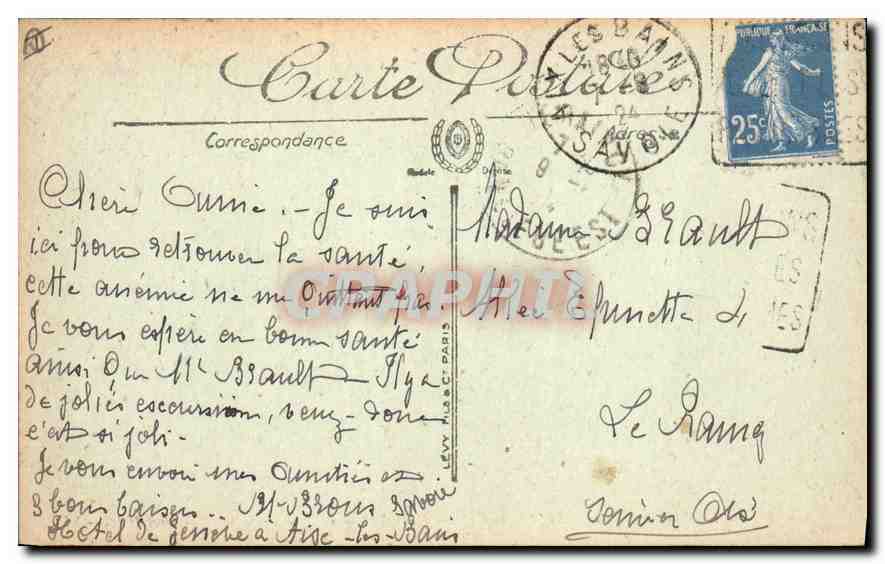 Carte Postale
Correspondance
Adresse
Modèle Déposé
AIX LES BAINS
18 10
1 -8
24
SAVOIE
REPUBLIQUE FRANÇAISE
25c
POSTES
NS
ES
IES
8
EST
Chère Amie. - Je suis
ici pour retrouver la santé,
cette anémie ne me quittant pas.
Je vous espère en bonne santé
ainsi que Mr Brault. Il y a
de jolies escoursion, venez-donc
c'est si joli.
Je vous envoie mes amitiés et
3 bons baisers.. Savoie
Hotel de à Aixe-les-Bains
LÉVY FILS & Cie PARIS
Madame Brault
Allée Epinette 4
Le Raincy
Seine et Oise
CPAPHIL